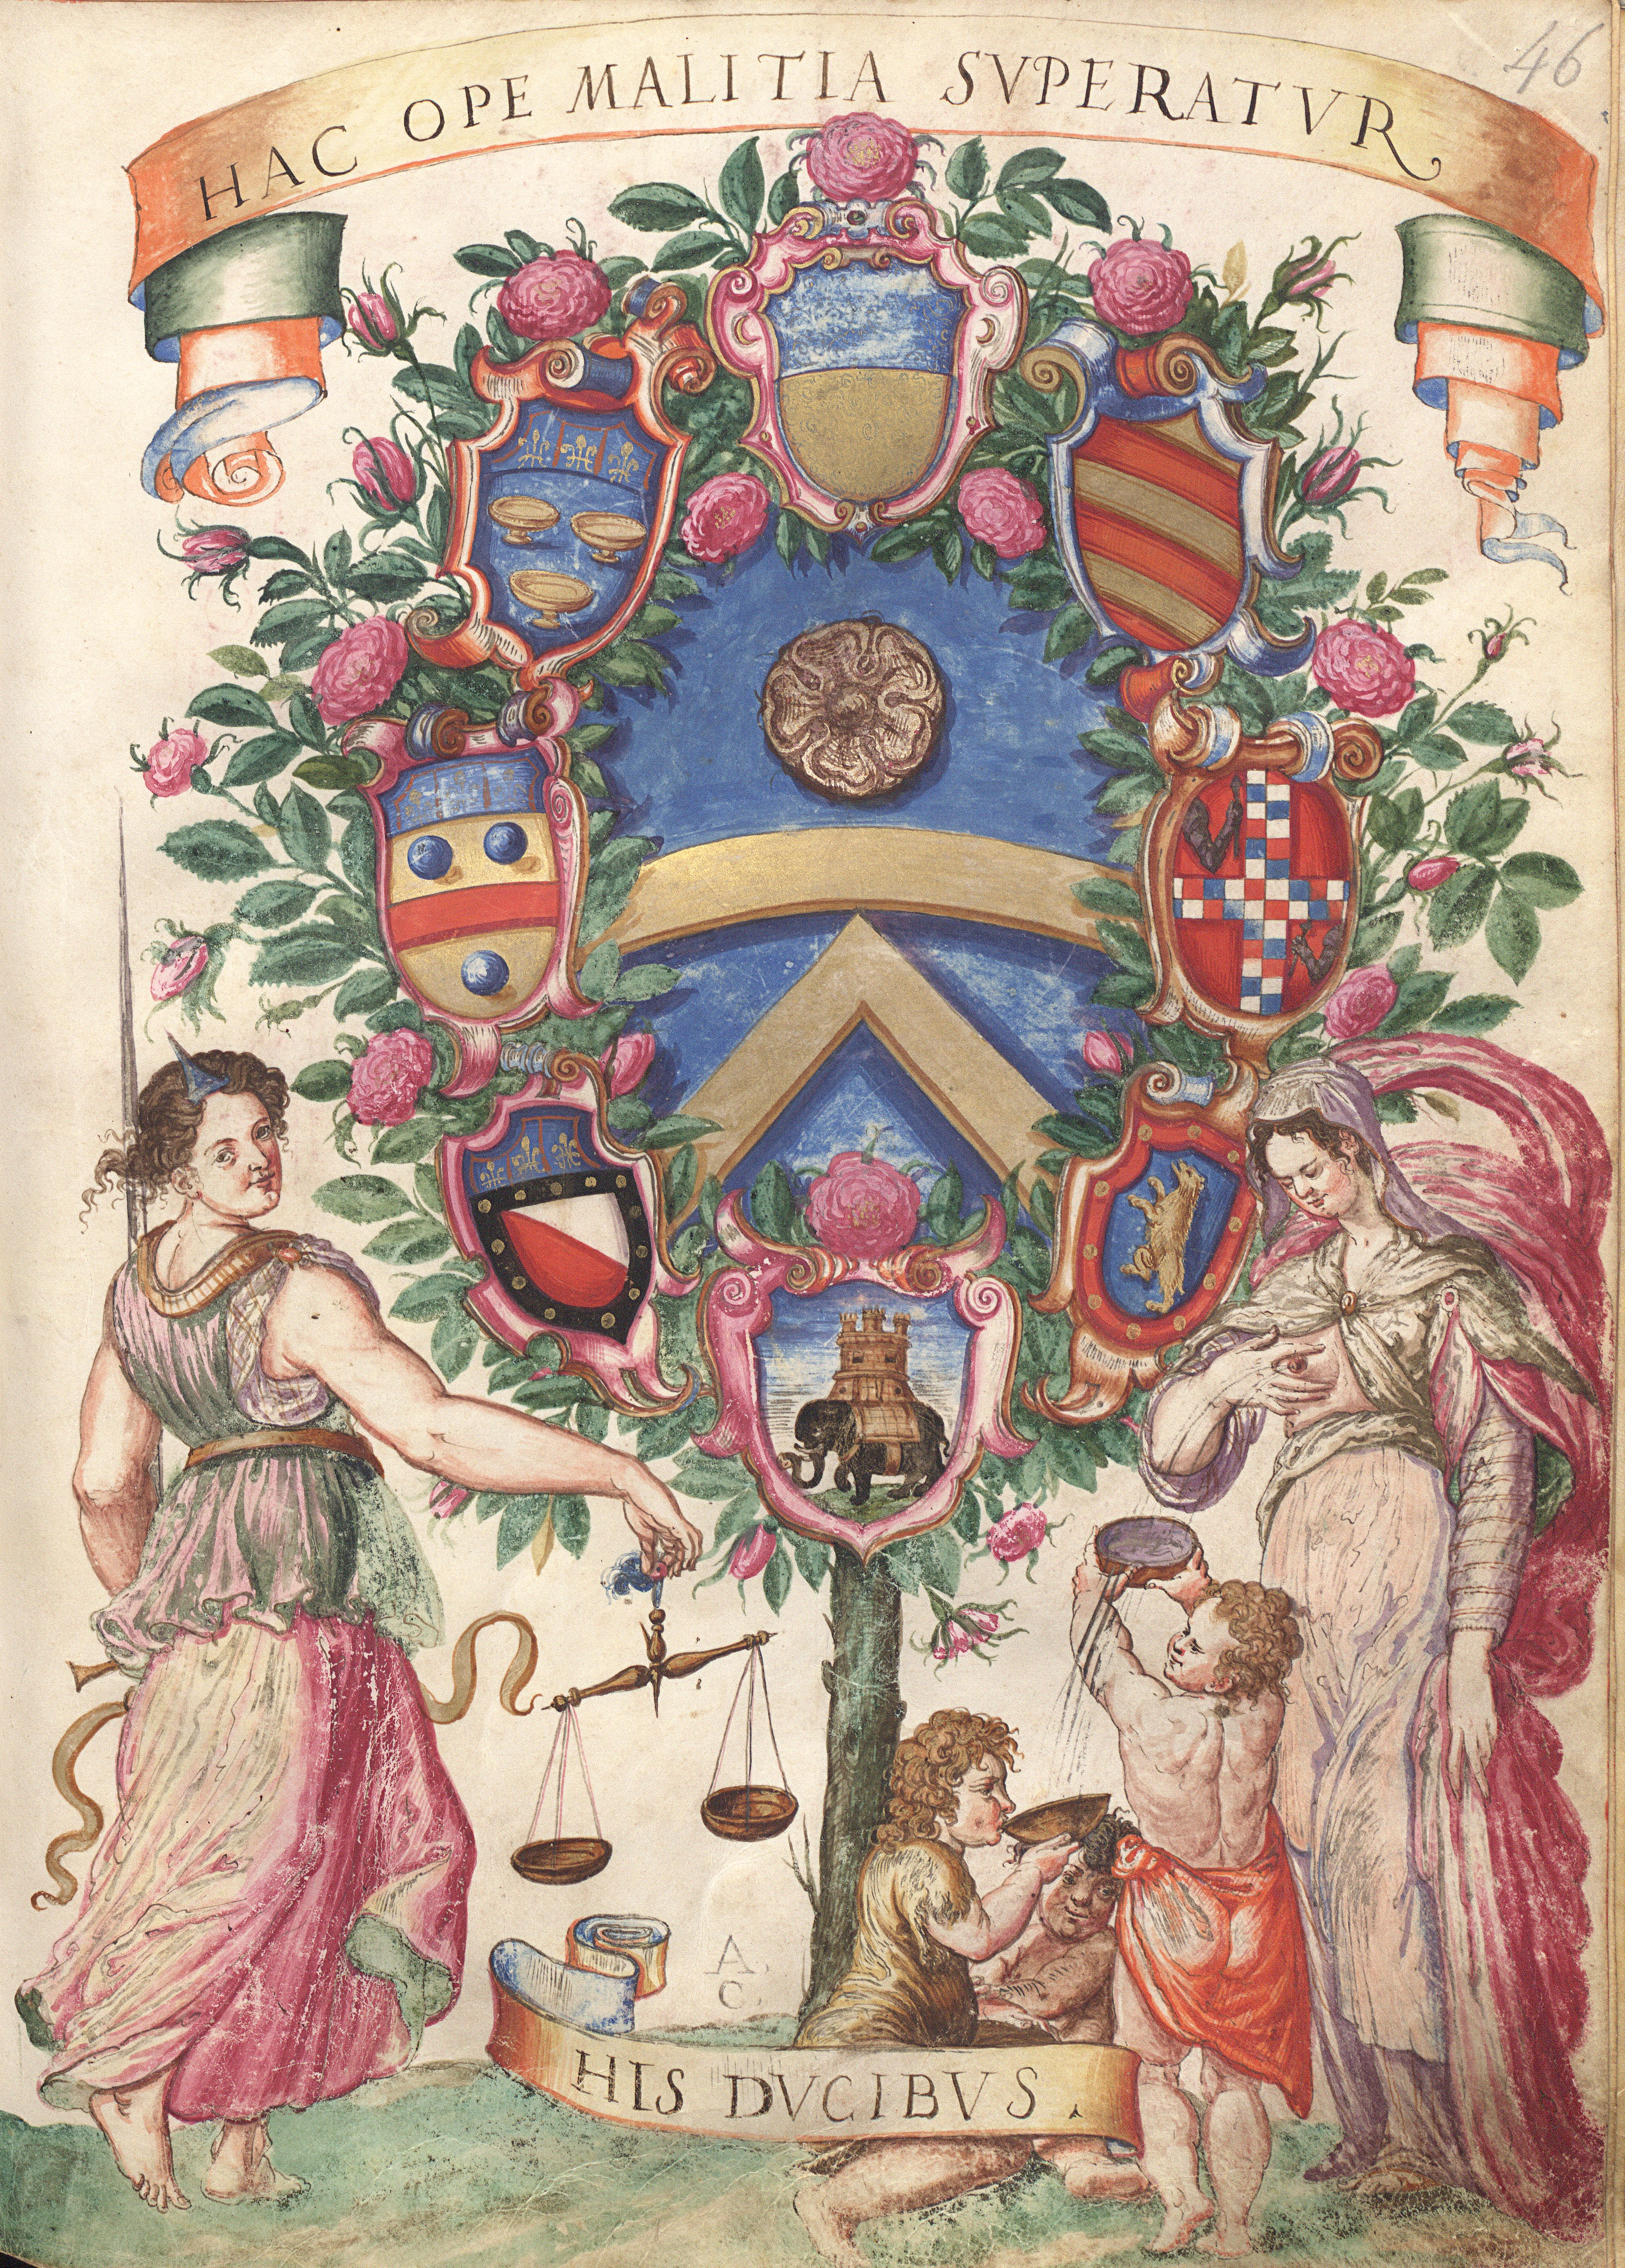 46
HAC OPE MALITIA SVPERATVR
A.
C.
HIS DVCIBVS.